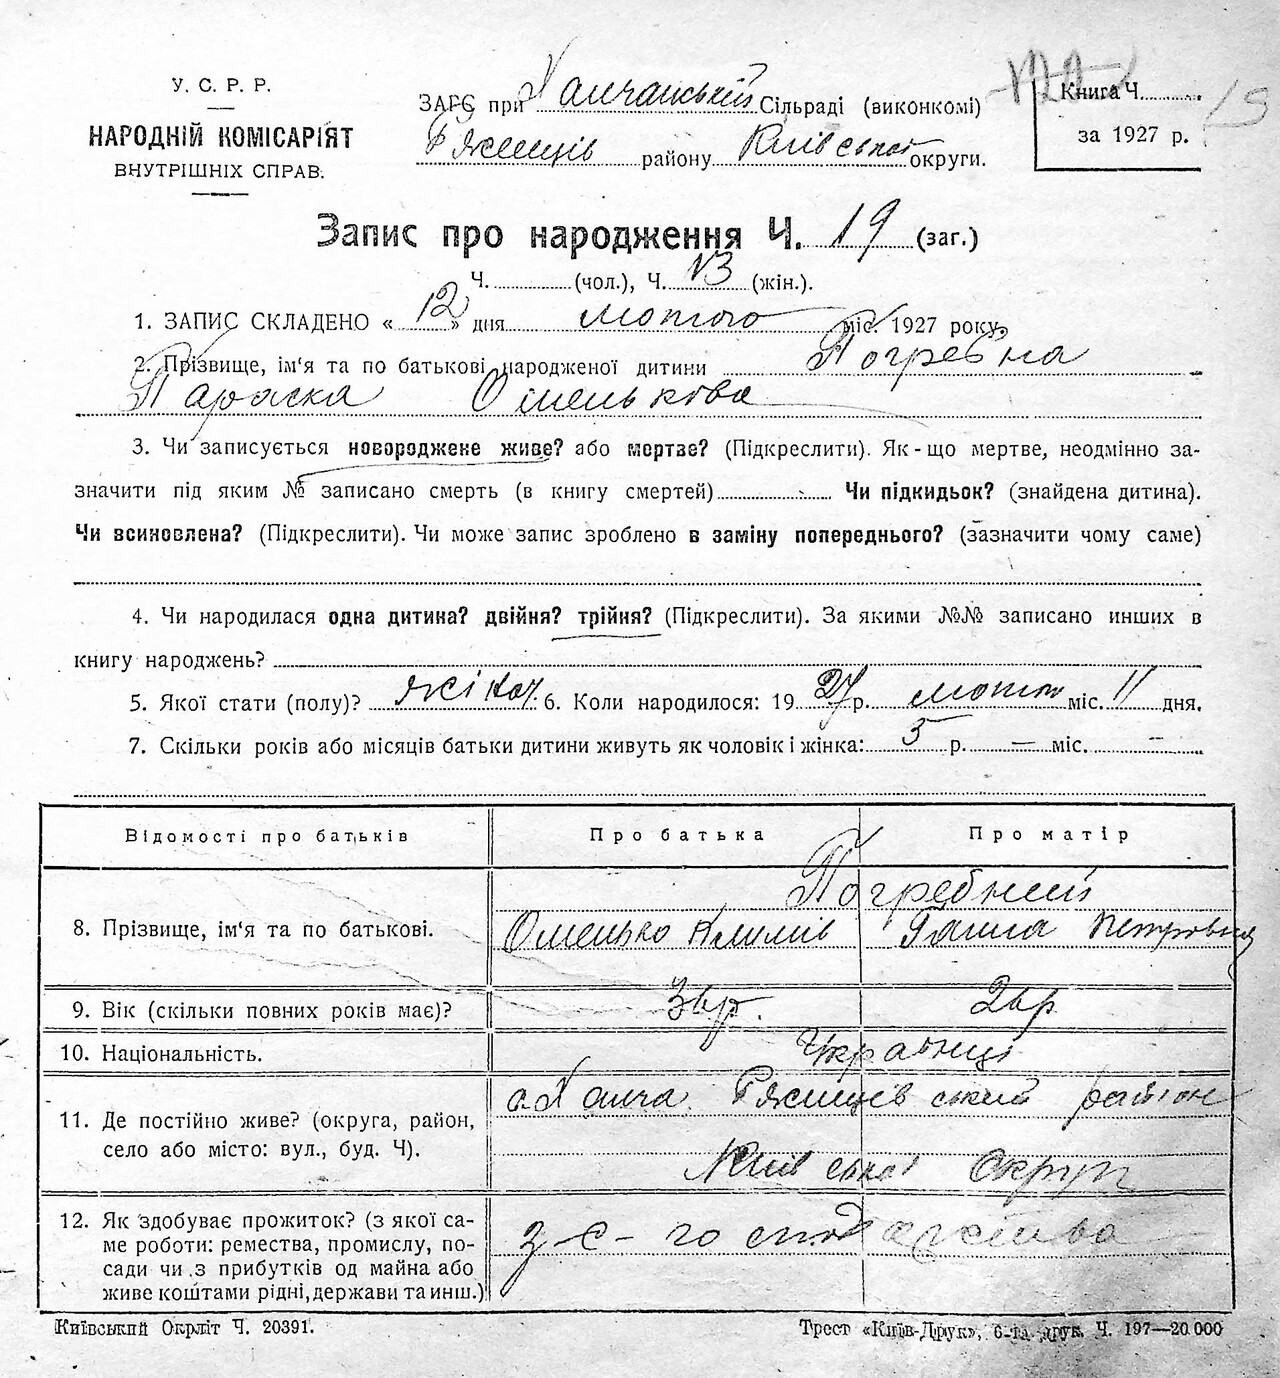 У. С. Р. Р.
НАРОДНІЙ КОМІСАРІЯТ
ВНУТРІШНІХ СПРАВ.
ЗАГС при Халчанській Сільраді (виконкомі)
Ржищів району Київської округи.
Книга Ч.
за 1927 р.
Запис про народження Ч. 19 (заг.)
Ч. (чол.), Ч. 13 (жін.).
1. ЗАПИС СКЛАДЕНО « 12 » дня лютого міс. 1927 року.
2. Прізвище, ім'я та по батькові народженої дитини Погребна
Параска Омелькова
3. Чи записується новороджене живе? або мертве? (Підкреслити). Як-що мертве, неодмінно за-
значити під яким № записано смерть (в книгу смертей) Чи підкидьок? (знайдена дитина).
Чи всиновлена? (Підкреслити). Чи може запис зроблено в заміну попереднього? (зазначити чому саме)
4. Чи народилася одна дитина? двійня? трійня? (Підкреслити). За якими №№ записано инших в
книгу народжень?
5. Якої стати (полу)? жіноч. 6. Коли народилося: 1927 р. лютого міс. 11 дня.
7. Скільки років або місяців батьки дитини живуть як чоловік і жінка: 5 р. — міс. —
Відомості про батьків Про батька Про матір
Погребний
8. Прізвище, ім'я та по батькові. Омелько Климів Ганна Петровна
9. Вік (скільки повних років має)?
10. Національність. Українці
11. Де постійно живе? (округа, район,
село або місто: вул., буд. Ч).
с. Халча Ржищівський район
Київської Округи
12. Як здобуває прожиток? (з якої са-
ме роботи: ремества, промислу, по-
сади чи з прибутків од майна або
живе коштами рідні, держави та инш.)
з с-господарства
Київський Окрліт Ч. 20391.
Трест «Київ-Друк», 6-та друк. Ч. 197—20.000